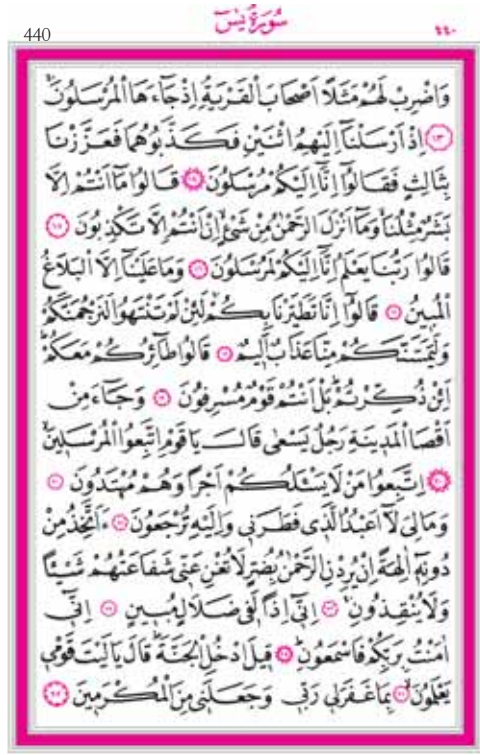 440
سُورَةُ يٰسٓ
٤٤٠
وَاضْرِبْ لَهُمْ مَثَلًا اَصْحَابَ الْقَرْيَةِ اِذْ جَٓاءَهَا الْمُرْسَلُونَۚ
﴿١٣﴾ اِذْ اَرْسَلْنَٓا اِلَيْهِمُ اثْنَيْنِ فَكَذَّبُوهُمَا فَعَزَّزْنَا
بِثَالِثٍ فَقَالُٓوا اِنَّٓا اِلَيْكُمْ مُرْسَلُونَ ﴿١٤﴾ قَالُوا مَٓا اَنْتُمْ اِلَّا
بَشَرٌ مِثْلُنَاۙ وَمَٓا اَنْزَلَ الرَّحْمٰنُ مِنْ شَيْءٍۙ اِنْ اَنْتُمْ اِلَّا تَكْذِبُونَ ﴿١٥﴾
قَالُوا رَبُّنَا يَعْلَمُ اِنَّٓا اِلَيْكُمْ لَمُرْسَلُونَ ﴿١٦﴾ وَمَا عَلَيْنَٓا اِلَّا الْبَلَاغُ
الْمُبٖينُ ﴿١٧﴾ قَالُٓوا اِنَّا تَطَيَّرْنَا بِكُمْۚ لَئِنْ لَمْ تَنْتَهُوا لَنَرْجُمَنَّكُمْ
وَلَيَمَسَّنَّكُمْ مِنَّا عَذَابٌ اَلٖيمٌ ﴿١٨﴾ قَالُوا طَٓائِرُكُمْ مَعَكُمْۜ
اَئِنْ ذُكِّرْتُمْۜ بَلْ اَنْتُمْ قَوْمٌ مُسْرِفُونَ ﴿١٩﴾ وَجَٓاءَ مِنْ
اَقْصَا الْمَدٖينَةِ رَجُلٌ يَسْعٰى قَالَ يَا قَوْمِ اتَّبِعُوا الْمُرْسَلٖينَۙ
﴿٢٠﴾ اِتَّبِعُوا مَنْ لَا يَسْـَٔلُكُمْ اَجْرًا وَهُمْ مُهْتَدُونَ ﴿٢١﴾
وَمَا لِيَ لَٓا اَعْبُدُ الَّذٖي فَطَرَنٖي وَاِلَيْهِ تُرْجَعُونَ ﴿٢٢﴾ ءَاَتَّخِذُ مِنْ
دُونِهٖٓ اٰلِهَةً اِنْ يُرِدْنِ الرَّحْمٰنُ بِضُرٍّ لَا تُغْنِ عَنّٖي شَفَاعَتُهُمْ شَيْـًٔا
وَلَا يُنْقِذُونِۚ ﴿٢٣﴾ اِنّٖٓي اِذًا لَفٖي ضَلَالٍ مُبٖينٍ ﴿٢٤﴾ اِنّٖٓي
اٰمَنْتُ بِرَبِّكُمْ فَاسْمَعُونِۜ ﴿٢٥﴾ قٖيلَ ادْخُلِ الْجَنَّةَۜ قَالَ يَا لَيْتَ قَوْمٖي
يَعْلَمُونَۙ ﴿٢٦﴾ بِمَا غَفَرَ لٖي رَبّٖي وَجَعَلَنٖي مِنَ الْمُكْرَمٖينَ ﴿٢٧﴾